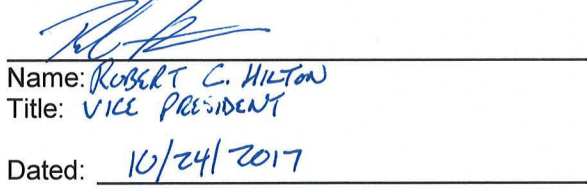 Name: ROBERT C. HILTON
Title: VICE PRESIDENT
Dated: 10/24/2017